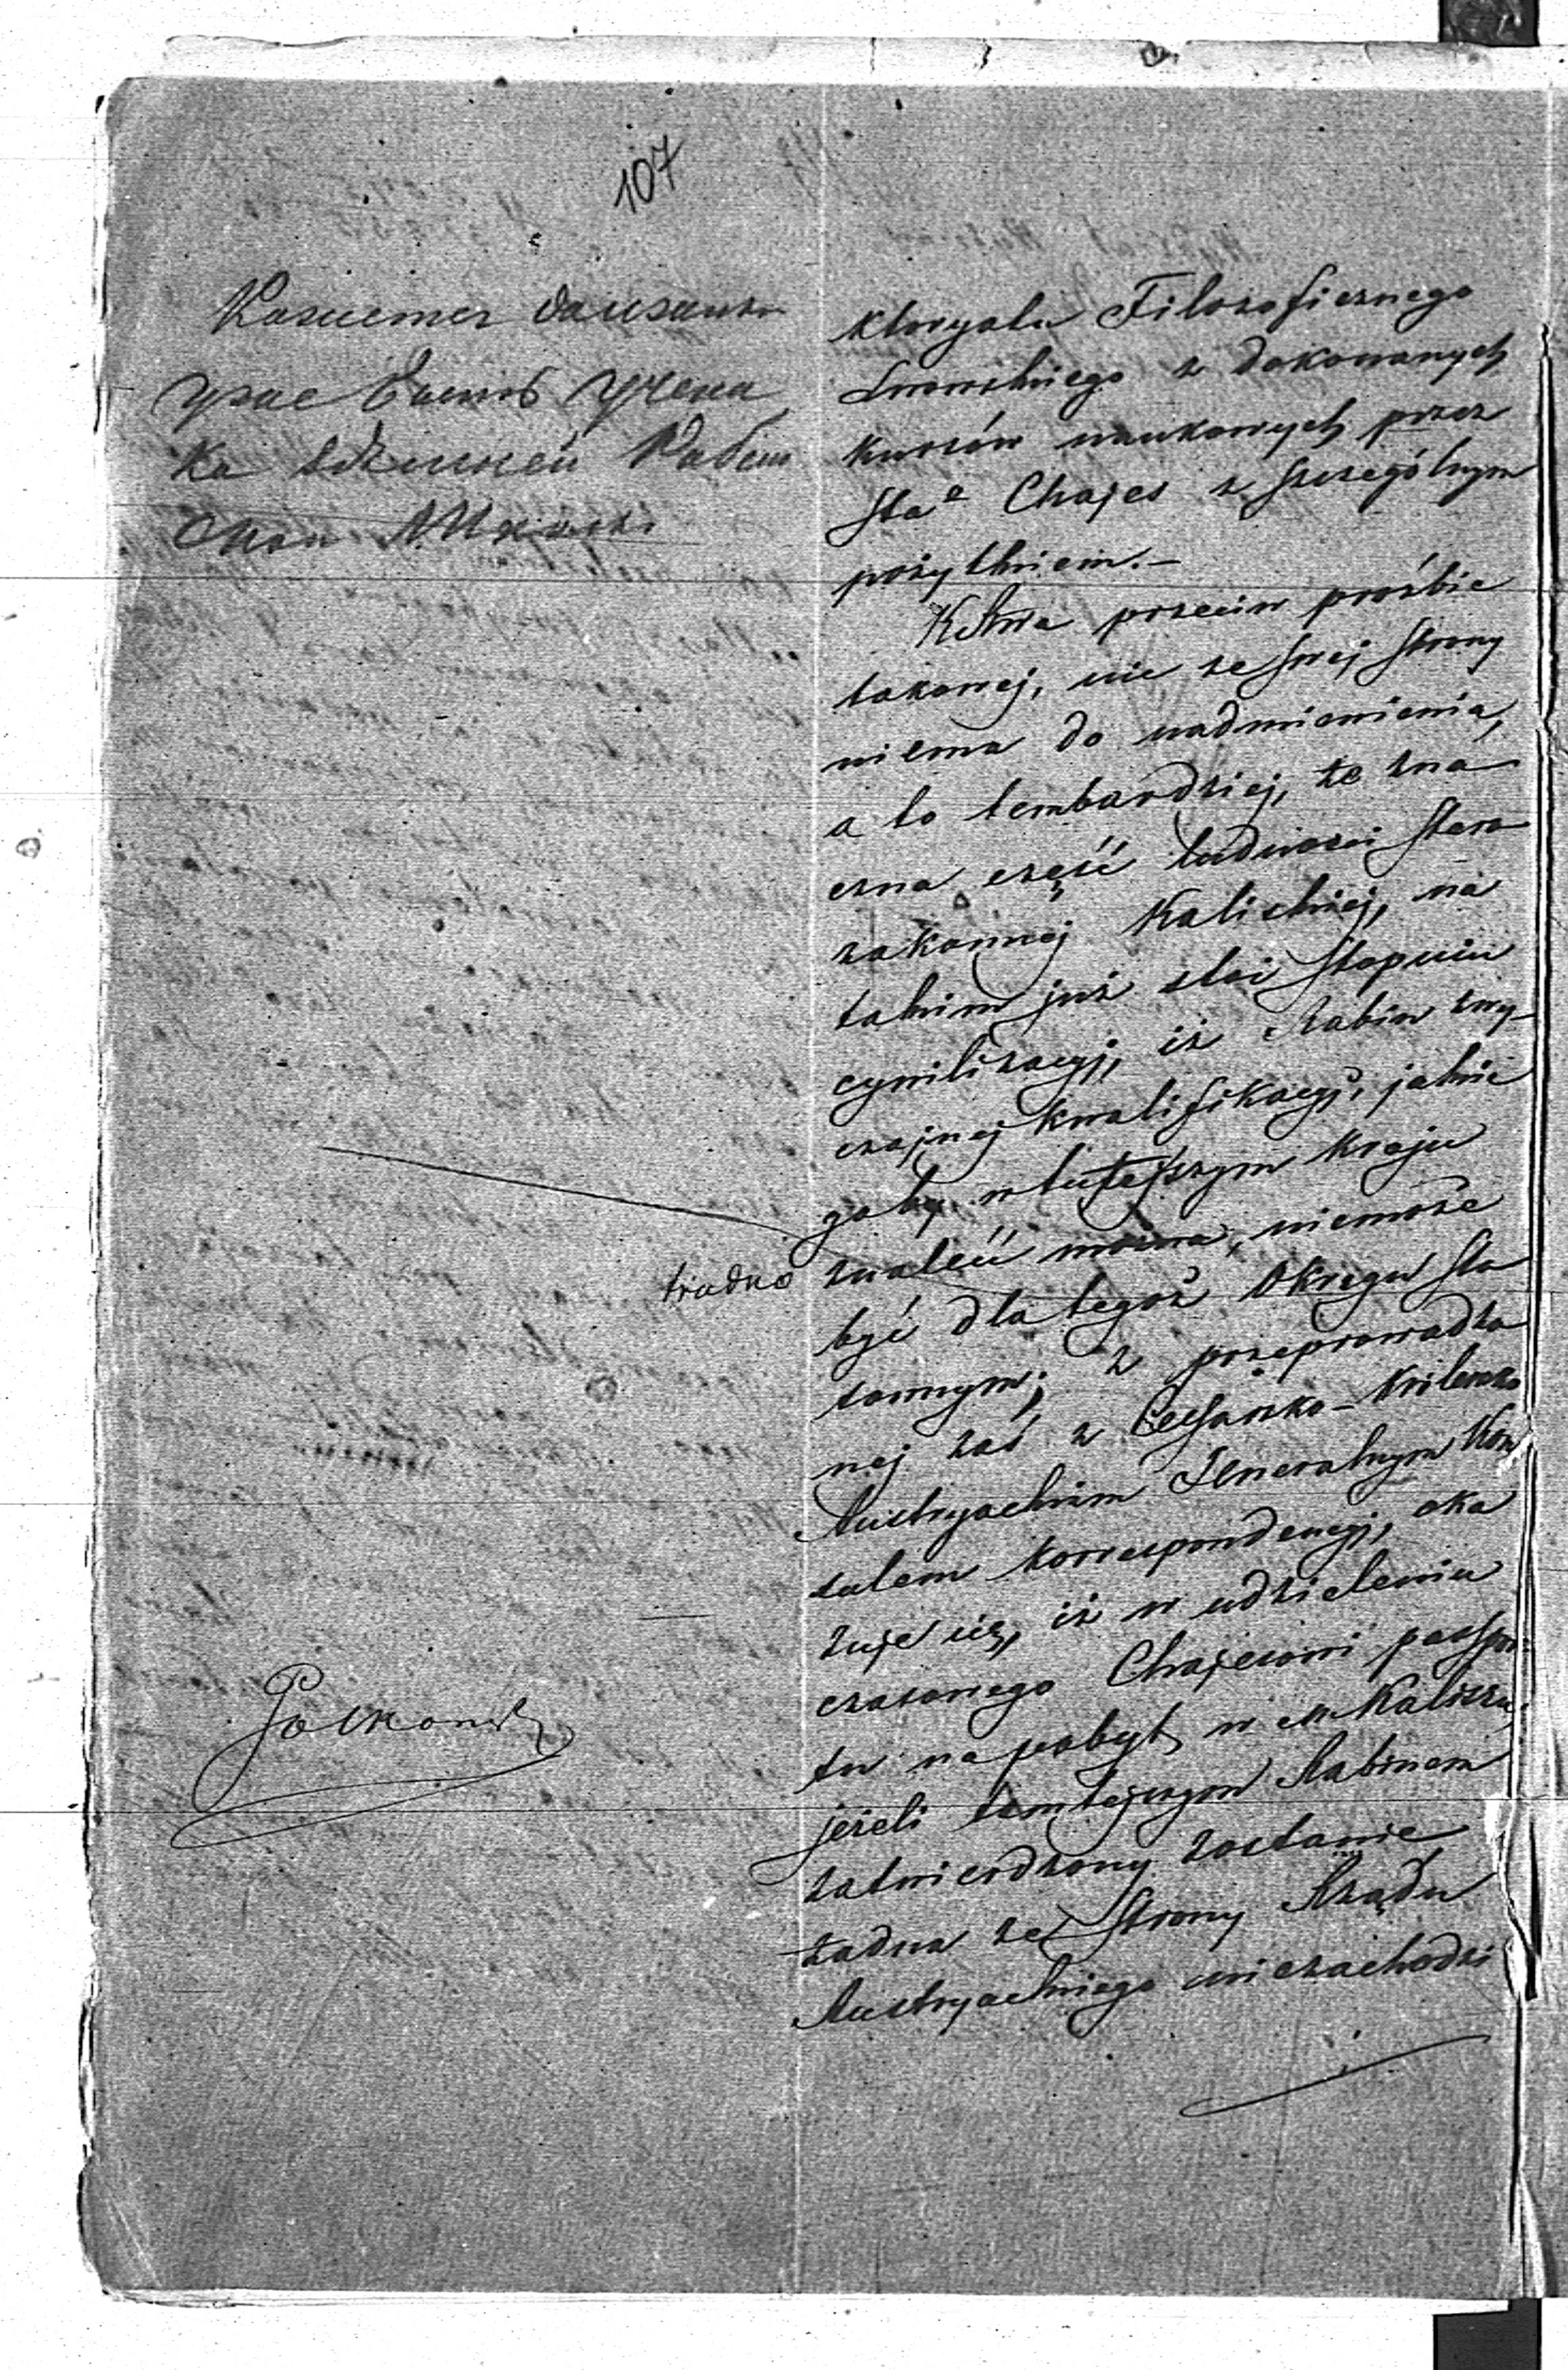 107
ktoryatu Filozoficznego
Lwowskiego z dokonanych
kursów naukowych przez
Sta^e Chajes z szczególnym
pożytkiem.-
przeciw prośbie
takowej, nic ze swej strony
niema do nadmienienia,
a to tembardziej, że zna
czna część ludności Staro
zakonnej Kaliskiej, na
takim już stoi stopniu
cywilizacyj, iż Rabin zwy-
czajnej kwalifikacyj, jakie
goby w tutejszym kraju
znaleść można, niemoże
trudno
być dla tegoż Okręgu sto
sownym; z przeprowadzo
nej zaś z Cesarsko-Królewsko
Austryackim Jeneralnym Kon
sulem korrespondencyj, oka
zuje się, iż w udzieleniu
czasowego Chajesowi paszpor=
tu na pobyt w m Kaliszu,
jeżeli tamtejszym Rabinem
zatwierdzony zostanie
żadna ze Strony Rządu
Austryackiego niezachodzi